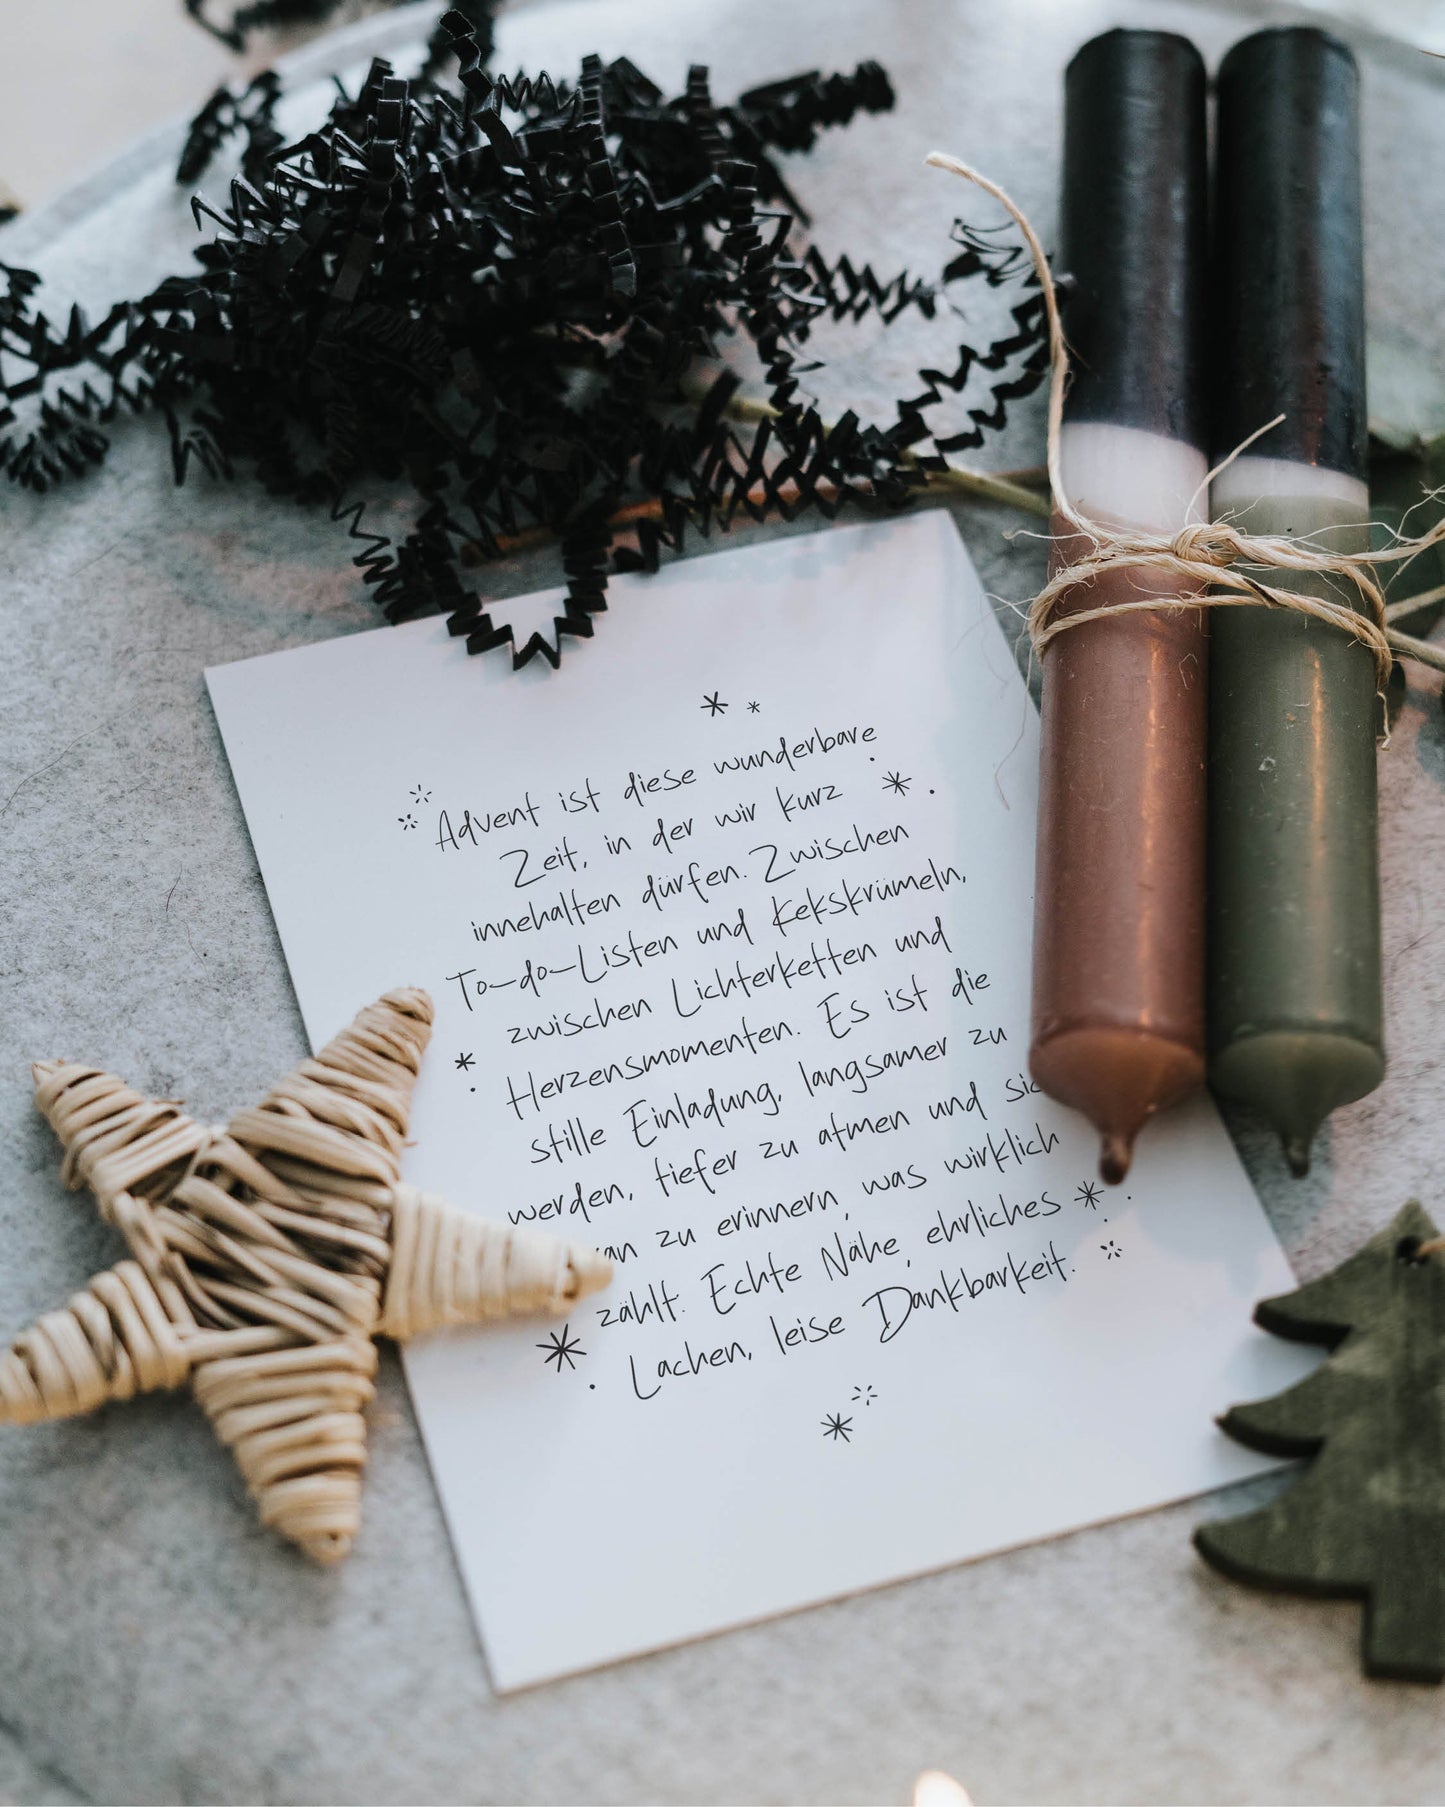 Advent ist diese wunderbare
Zeit, in der wir kurz
innehalten dürfen. Zwischen
To-do-Listen und Kekskrümeln,
zwischen Lichterketten und
Herzensmomenten. Es ist die
stille Einladung, langsamer zu
werden, tiefer zu atmen und
zu erinnern, was wirklich
zählt: Echte Nähe, ehrliches
Lachen, leise Dankbarkeit.